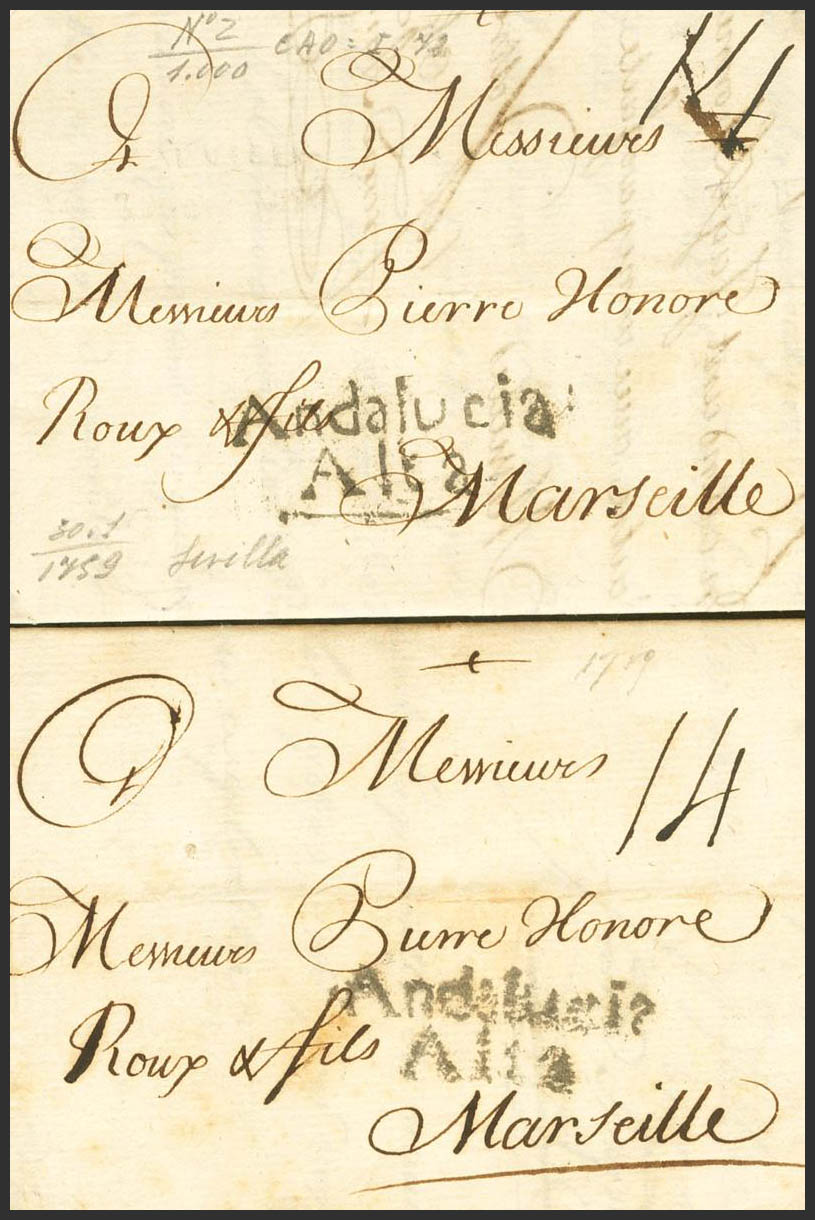 Nº 2
1.000
14
Messieurs
Messieurs Pierre Honore
Roux & fils
Andalucia
Alta
Marseille
1759 Sevilla
14
Messieurs
Messieurs Pierre Honore
Roux & fils
Andalucia
Alta
Marseille